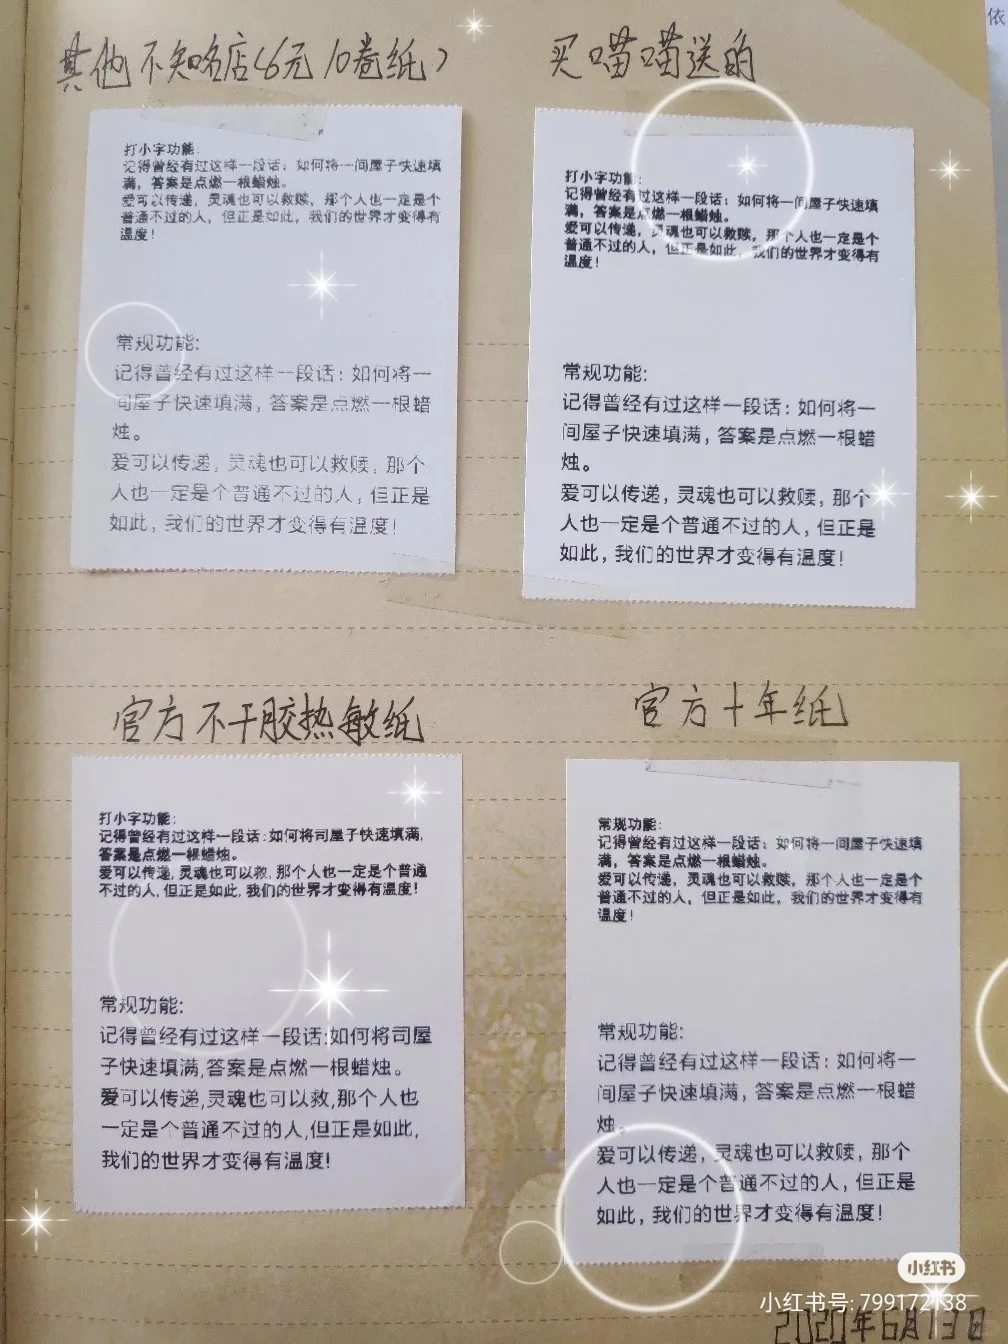 其他不知名店(6元10卷纸)
打小字功能:
记得曾经有过这样一段话：如何将一间屋子快速填
满，答案是点燃一根蜡烛。
爱可以传递，灵魂也可以救赎，那个人也一定是个
普通不过的人，但正是如此，我们的世界才变得有
温度！
常规功能:
记得曾经有过这样一段话：如何将一
间屋子快速填满，答案是点燃一根蜡
烛。
爱可以传递，灵魂也可以救赎，那个
人也一定是个普通不过的人，但正是
如此，我们的世界才变得有温度！
买喵喵送的
打小字功能:
记得曾经有过这样一段话：如何将一间屋子快速填
满，答案是点燃一根蜡烛。
爱可以传递，灵魂也可以救赎，那个人也一定是个
普通不过的人，但正是如此，我们的世界才变得有
温度！
常规功能:
记得曾经有过这样一段话：如何将一
间屋子快速填满，答案是点燃一根蜡
烛。
爱可以传递，灵魂也可以救赎，那个
人也一定是个普通不过的人，但正是
如此，我们的世界才变得有温度！
官方不干胶热敏纸
打小字功能:
记得曾经有过这样一段话:如何将司屋子快速填满,
答案是点燃一根蜡烛。
爱可以传递,灵魂也可以救,那个人也一定是个普通
不过的人,但正是如此,我们的世界才变得有温度!
常规功能:
记得曾经有过这样一段话:如何将司屋
子快速填满,答案是点燃一根蜡烛。
爱可以传递,灵魂也可以救,那个人也
一定是个普通不过的人,但正是如此,
我们的世界才变得有温度!
官方十年纸
常规功能:
记得曾经有过这样一段话：如何将一间屋子快速填
满，答案是点燃一根蜡烛。
爱可以传递，灵魂也可以救赎，那个人也一定是个
普通不过的人，但正是如此，我们的世界才变得有
温度！
常规功能:
记得曾经有过这样一段话：如何将一
间屋子快速填满，答案是点燃一根蜡
烛。
爱可以传递，灵魂也可以救赎，那个
人也一定是个普通不过的人，但正是
如此，我们的世界才变得有温度！
小红书
小红书号: 799172138
2020年6月13日
依